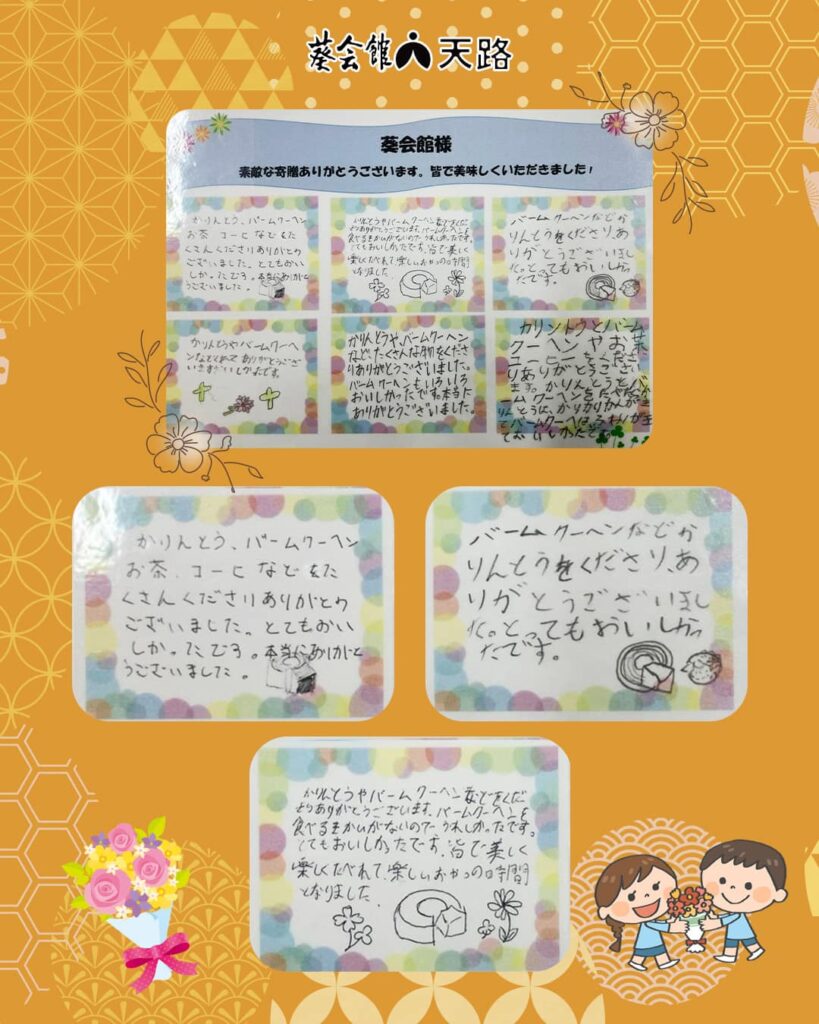 葵会館 天路
葵会館様
素敵な寄贈ありがとうございます。皆で美味しくいただきました!
かりんとう、バームクーヘン
お茶 コーヒ などをた
くさんくださりありがとう
ございました。とてもおい
しかったです。本当にありがと
うございました。
かりんとうやバームクーヘン などをくだ
さりありがとうございます。バームクーヘンを
食べるきかいがないのでうれしかったです。
とてもおいしかったです。皆で美しく
楽しくたべれて、楽しいおやつの時間
となりました
バームクーヘンなどか
りんとうをくださり、あ
りがとうございまし
た。とってもおいしかっ
たです。
かりんとうやバームクーヘ
ンなどくれて ありがとうござ
います
かりんとうや、バームクーヘン
など、たくさんな物をくださ
りありがとうございました。
バームクーヘンもいろいろ
おいしかったです。本当に
ありがとうございました。
カリントウとバーム
クーヘンやお茶
コーヒーをくださ
りありがとうござい
ます。かりんとうとバ
ームクーヘンを
かりんとう、バームクーヘン
お茶、コーヒ などをた
くさんくださりありがとう
ございました。とてもおい
しかったです。本当にありがと
うございました。
バームクーヘンなどか
りんとうをくださり、あ
りがとうございまし
た。とってもおいしかっ
たです。
かりんとうやバームクーヘン などをくだ
さりありがとうございます。バームクーヘンを
食べるきかいがないのでうれしかったです。
とてもおいしかったです。皆で美しく
楽しくたべれて、楽しいおやつの時間
となりました